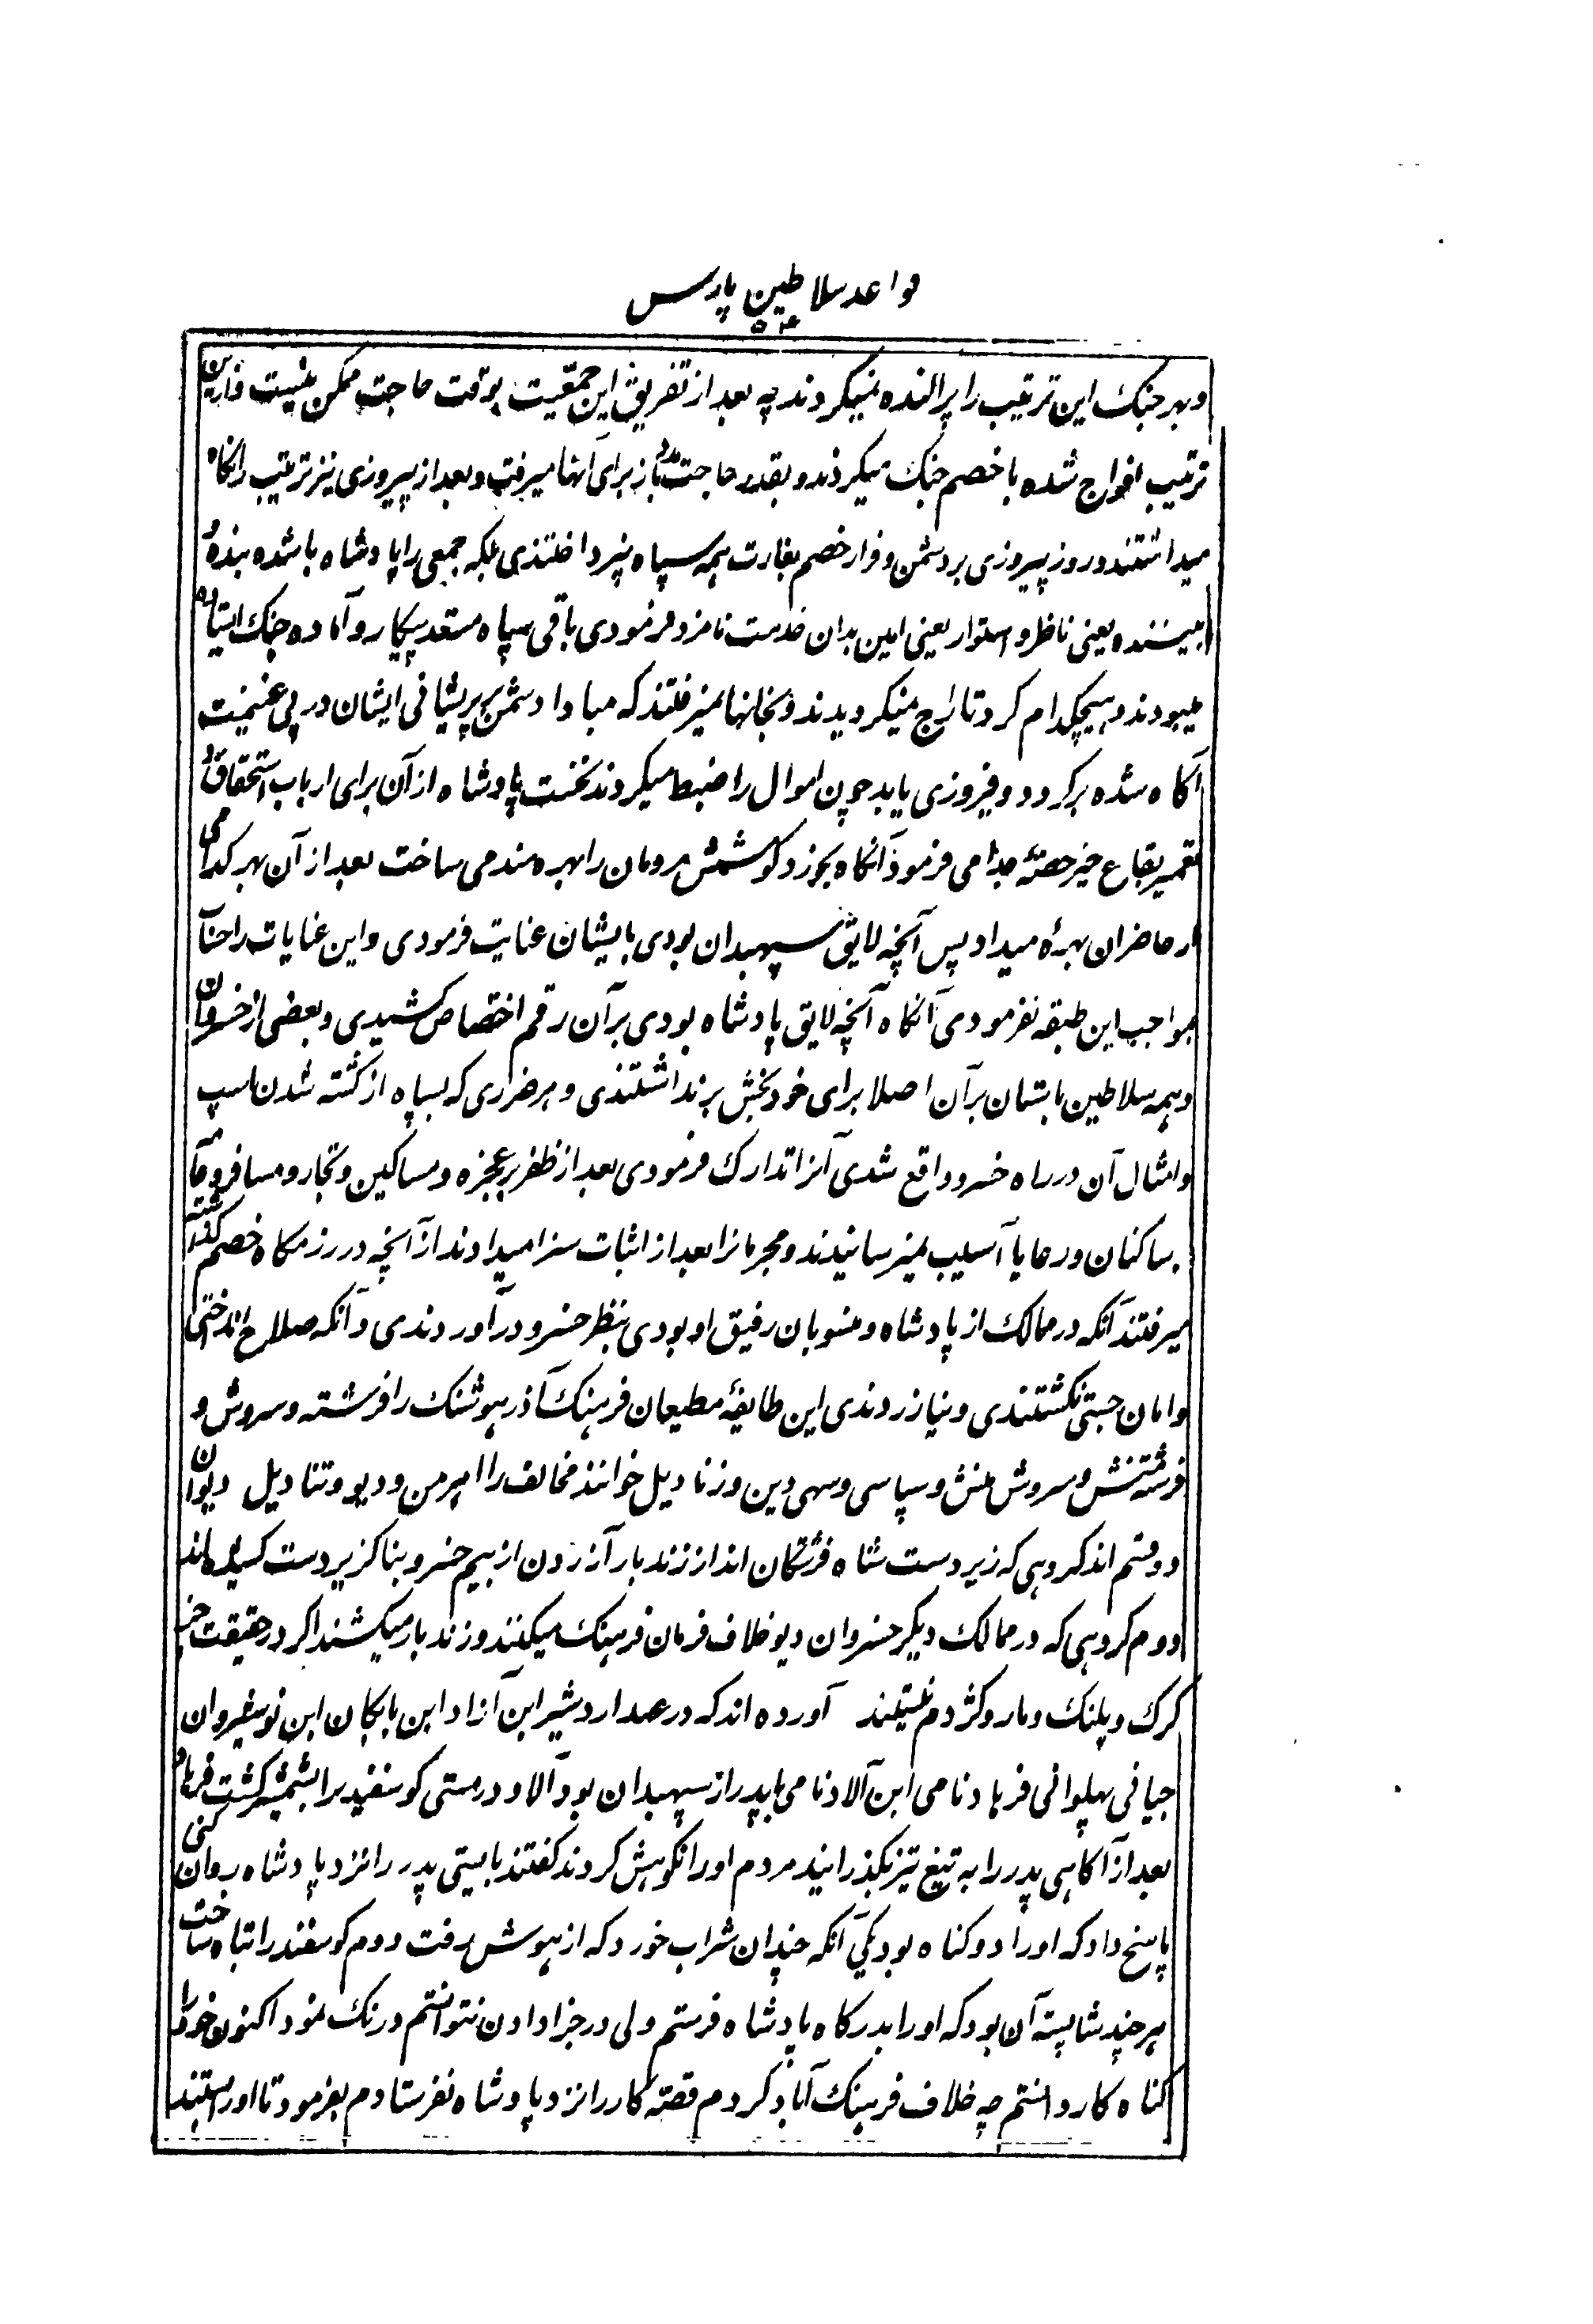 قواعد سلاطین پارس
۵۴
و بهر جنک این ترتیب را پراکنده نمیکردند چه بعد از تفریق این جمعیت بوقت حاجت ممکن نیست
ترتیب افواج شده با خصم جنک میکردند و بقدر حاجت مدد باز برای آنها میرفت و بعد از پیروزی نیز ترتیب را نکاه
میداشتند و روز پیروزی بر دشمن و فرار خصم بغارت همه سپاه نپرداختندی بلکه جمعی را پادشاه با شده بنده و
بیننده یعنی ناظر و استوار یعنی امین بدان خدمت نامزد فرمودی باقی سپاه مستعد پیکار و آماده جنک ایستاده
میبودند و هیچکدام کرد تاراج نمیکردیدند و بخانها نمیرفتند که مبادا دشمن بر پریشانی ایشان در پی غنیمت
آکاه شده برکردد و فیروزی یابد چون اموال را ضبط میکردند نخست پادشاه از آن برای ارباب استحقاق و
تعمیر بقاع خیر حصهٔ جدا می فرمود آنکاه بجوزد کوشش مردمان را بهره مند می ساخت بعد از آن بهر کدامی
از حاضران بهرهٔ میداد پس آنچه لایق سپهبدان بودی بایشان عنایت فرمودی و این عنایات را حساب
مواجب این طبقه نفرمودی آنکاه آنچه لایق پادشاه بودی بر آن رقم اختصاص کشیدی و بعضی از خسروان
و همه سلاطین باستان بر آن اصلا برای خود بخش بر نداشتندی و هر ضراری که بسپاه از کشته شدن اسپ
و امثال آن در راه خسرو واقع شدی آنرا تدارک فرمودی بعد از ظفر بر عجزه و مساکین و تجار و مسافر و عامه
ساکنان و رعایا آسیب نمیرسانیدند و مجرمانرا بعد از اثبات سزا میدادند از آنچه در رزمکاه خصم کذاشته
میرفتند آنکه در ممالک از پادشاه و منسوبان رفیق او بودی بنظر خسرو در آوردندی و آنکه صلاح انداختی
و امان جستی نکشتندی و نیازردندی این طایفهٔ مطیعان فرهنک آذر هوشنک را فرشته و سروش و
فرشته منش و سروش منش و سپاسی و سهی دین و زنادیل خوانند مخالف را اهرمن و دیو و تنادیل دیوان
دو قسم اند کروهی که زیردست شاه فرشتکان اند از زند بار آزردن از بیم خسرو بناکزیر دست کشیده اند
دوم کروهی که در ممالک دیکر خسروان دیو خلاف فرمان فرهنک میکنند و زند بار میکشند اکر در حقیقت جز
کرک و پلنک و مار و کژدم نیستند آورده اند که در عهد اردشیر ابن آزاد ابن بابکان ابن نوشیروان
جیانی پهلوانی فرهاد نامی ابن آلاد نامی پدر از سپهبدان بود آلاد در مستی کوسفند را بشمشیر کشت فرهاد
بعد از آکاهی پدر را به تیغ تیز بکذرانید مردم او را نکوهش کردند کفتند بایستی پدر را نزد پادشاه روان کنی
پاسخ داد که او را دو کناه بود یکی آنکه چندان شراب خورد که از هوش رفت دوم کوسفند را تباه ساخت
هر چند شایسته آن بود که او را بدرکاه پادشاه فرستم ولی در جزا دادن نتوانستم درنک نمود اکنون خود را
کناه کار دانستم چه خلاف فرهنک آباد کردم قصه کار را نزد پادشاه نفرستادم بفرمود تا او را ببستند